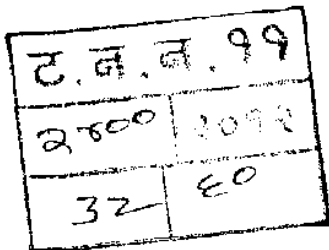 ट. न. न. ११
२४०० २०१२
32 ६०